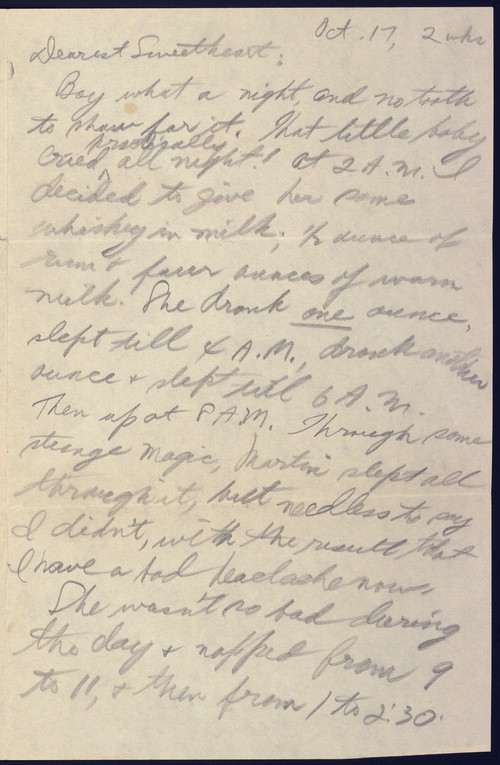 Oct. 17, 2 wks
Dearest Sweetheart:
Boy what a night, and no tooth
to show for it. That little baby
practically
cried all night! At 2 A.M. I
decided to give her some
whiskey in milk; ½ ounce of
rum & four ounces of warm
milk. She drank one ounce,
slept till 4 A.M., drank another
ounce & slept till 6 A.M.
Then up at 8 A.M. Through some
strange magic, Martin slept all
through it, but needless to say
I didn't, with the result that
I have a bad headache now.
She wasn't so bad during
the day & napped from 9
to 11, & then from 1 to 2:30.